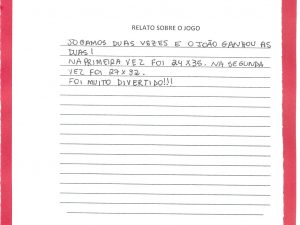 RELATO SOBRE O JOGO
JOGAMOS DUAS VEZES E O JOÃO GANHOU AS
DUAS!
NA PRIMEIRA VEZ FOI 24X36. NA SEGUNDA
VEZ FOI 27X32.
FOI MUITO DIVERTIDO!!!